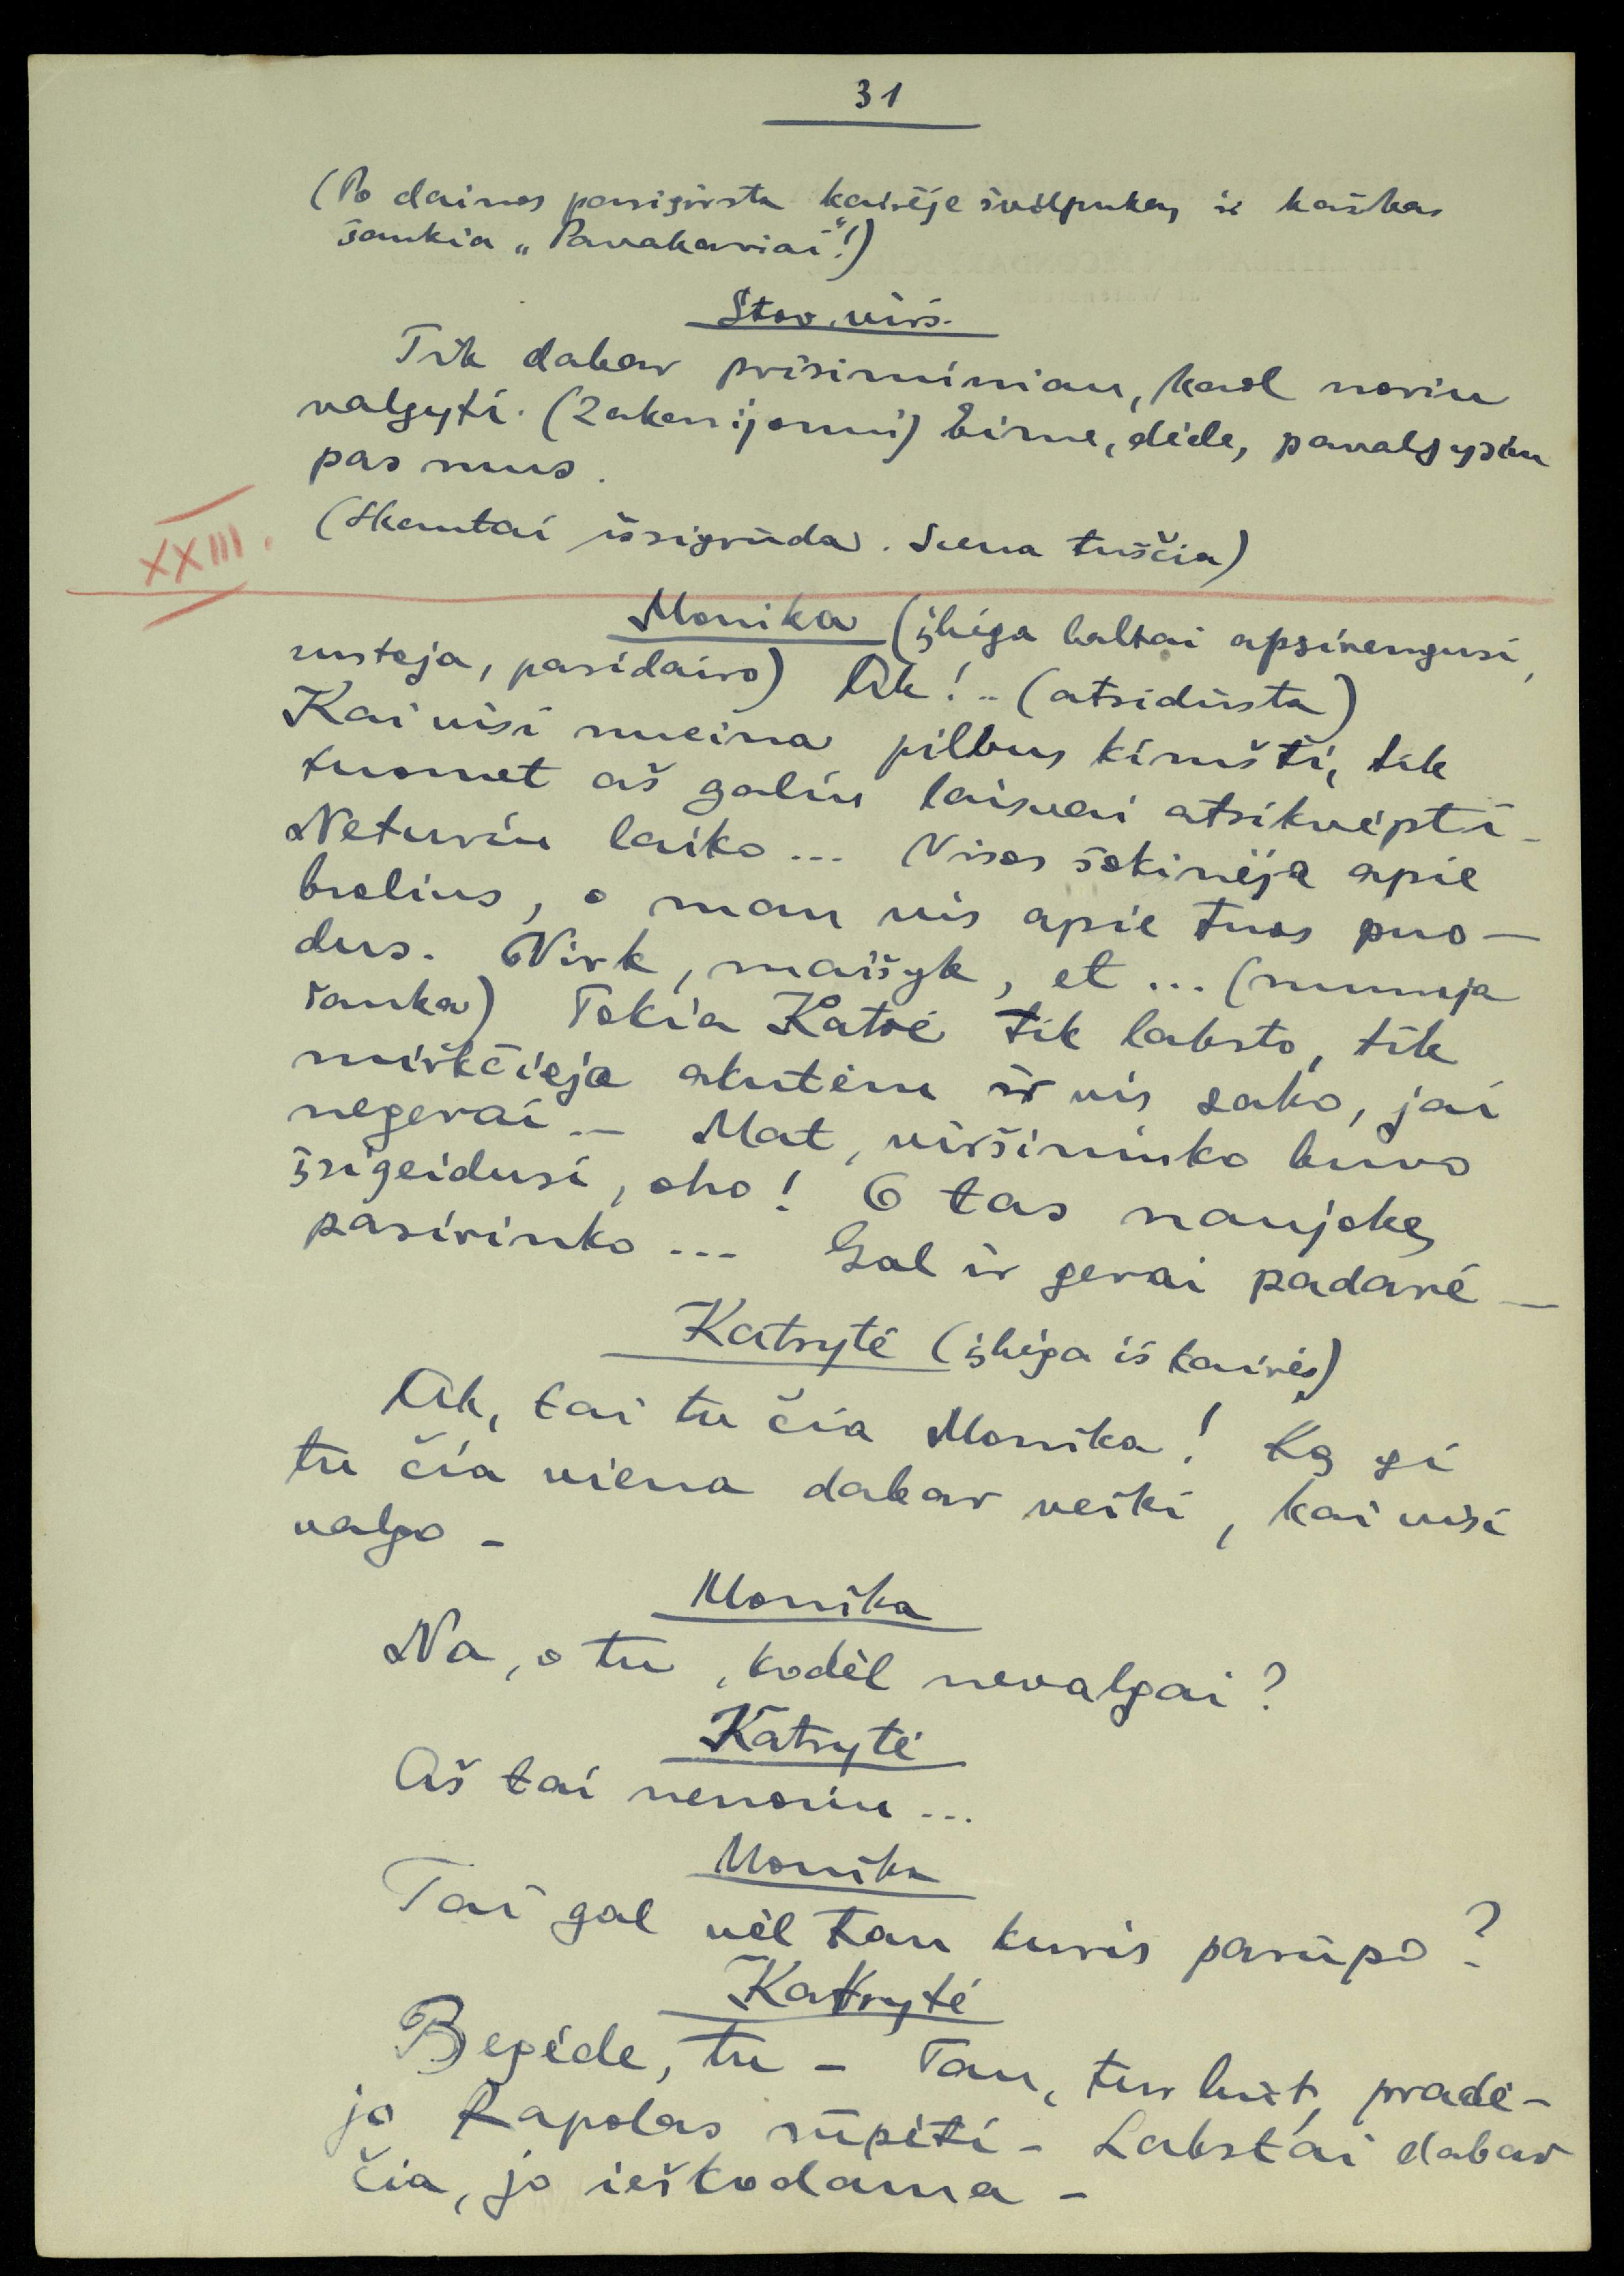 31
(Po dainos pasigirsta kairėje švilpukas ir kažkas
šaukia „Pavakariai“!)
Stov. virš.
Tik dabar prisiminiau, kad noriu
valgyti. (Zakarijomui) Eime, dėde, pavalgysim
pas mus.
(Skautai išsigrūda. Scena tuščia)
XXIII.
Monika (įbėga baltai apsirengusi,
sustoja, pasidairo) Ak!.. (atsidūsta)
Kai visi nueina pilvus kimšti, tik
tuomet aš galiu laisvai atsikvėpti –
Neturiu laiko ... Visos šokinėja apie
brolius, o man vis apie tuos puo–
dus. Virk, maišyk, et ... (numoja
ranka) Tokia Katrė tik laksto, tik
mirkčioja akutėm ir vis sako, jai
negerai – Mat, viršininko buvo
įsigeidusi, oho! O tas naujokę
pasirinko ... Gal ir gerai padarė –
Katrytė (įbėga iš kairės)
Ak, tai tu čia Monika! Ką gi
tu čia viena dabar veiki, kai visi
valgo –
Monika
Na, o tu, kodėl nevalgai?
Katrytė
Aš tai nenoriu ...
Monika
Tai gal vėl tau kuris parūpo?
Katrytė
Begėde, tu – Tau, tur būt, pradė–
jo Rapolas rūpėti – Lakstai dabar
čia, jo ieškodama –